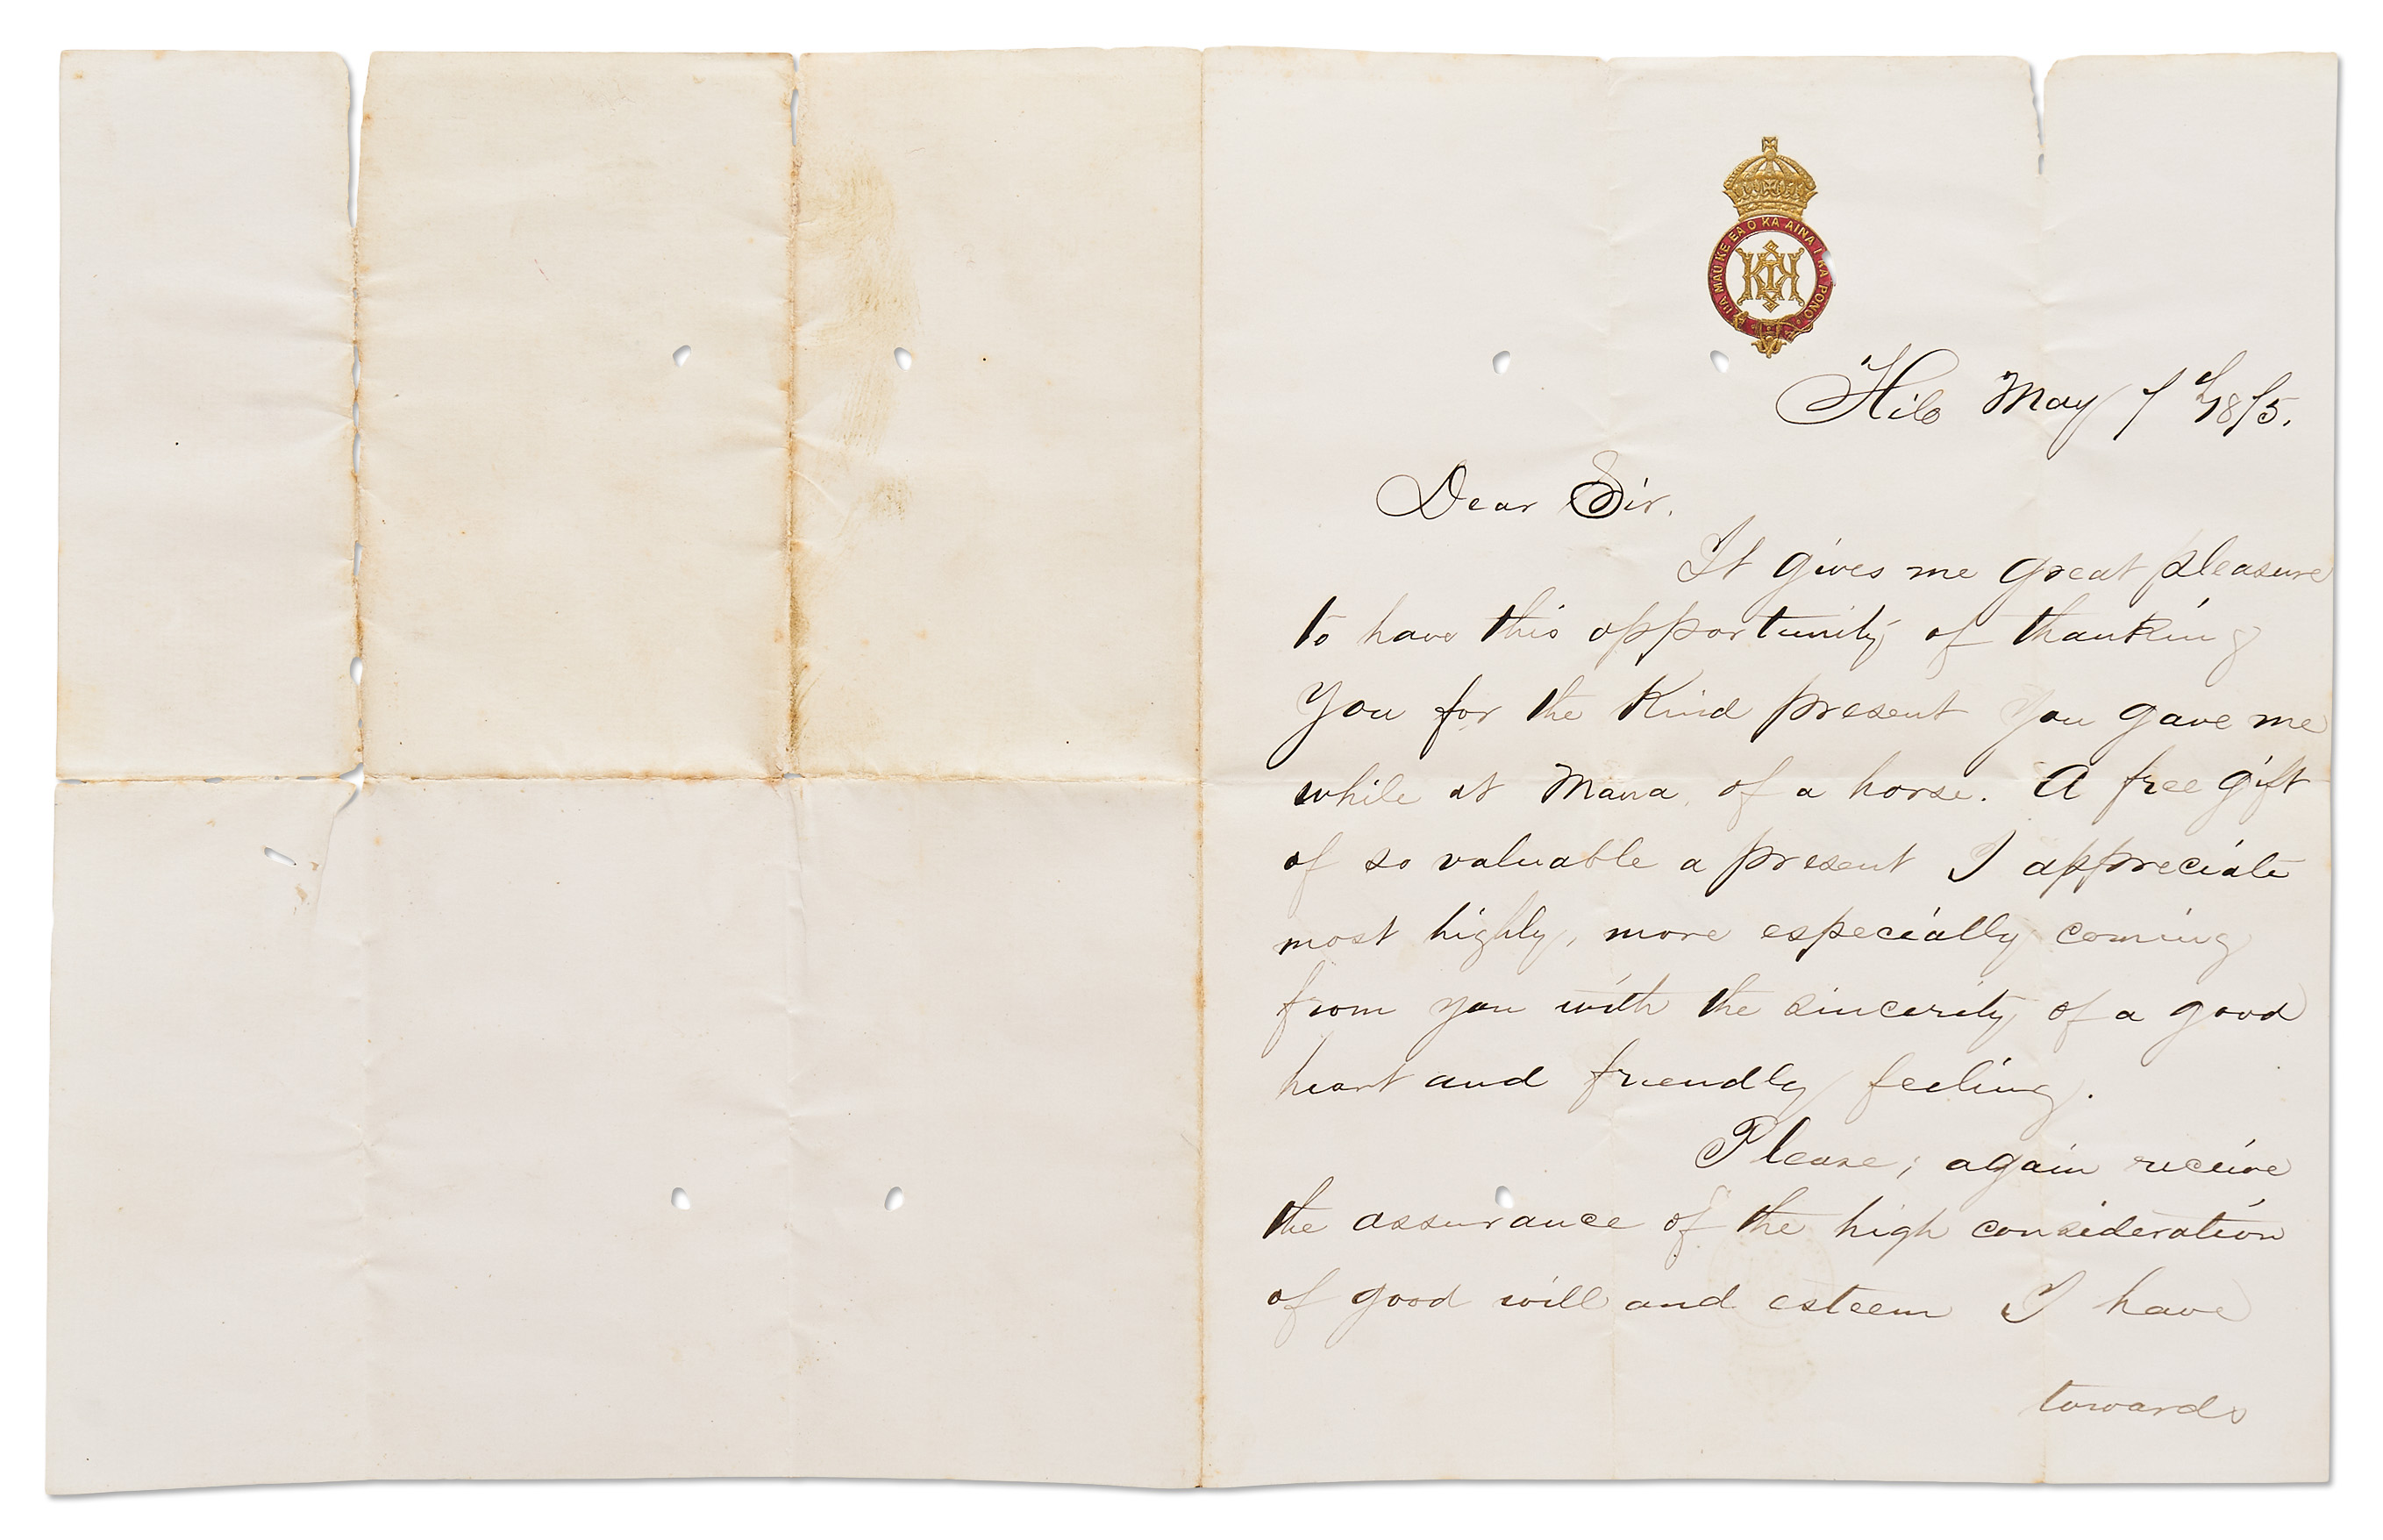 UA MAU KE EA O KA AINA I KA PONO
Hilo May 1st 1875.
Dear Sir.
It gives me great pleasure
to have this opportunity of thanking
You for the Kind present You gave me
while at Mana, of a horse. A free gift
of so valuable a present I appreciate
most highly, more especially coming
from you with the sincerity of a good
heart and friendly feeling.
Please, again receive
the assurance of the high consideration
of good will and esteem I have
towards